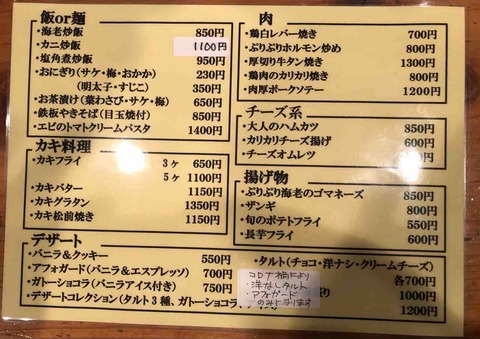 飯or麺
・海老炒飯 850円
・カニ炒飯 1100円
・塩角煮炒飯 950円
・おにぎり（サケ・梅・おかか） 230円
（明太子・すじこ） 350円
・お茶漬け（葉わさび・サケ・梅） 650円
・鉄板やきそば（目玉焼付） 850円
・エビのトマトクリームパスタ 1400円
カキ料理
・カキフライ 3ヶ 650円
5ヶ 1100円
・カキバター 1150円
・カキグラタン 1350円
・カキ松前焼き 1150円
デザート
・バニラ＆クッキー 550円
・アフォガード（バニラ＆エスプレッソ） 700円
・ガトーショコラ（バニラアイス付き） 750円
・デザートコレクション（タルト3種、ガトーショコラ、
肉
・鶏白レバー焼き 700円
・ぷりぷりホルモン炒め 800円
・厚切り牛タン焼き 1300円
・鶏肉のカリカリ焼き 800円
・肉厚ポークソテー 1200円
チーズ系
・大人のハムカツ 850円
・カリカリチーズ揚げ 600円
・チーズオムレツ
揚げ物
・ぷりぷり海老のゴマネーズ 850円
・ザンギ 800円
・旬のポテトフライ 550円
・長芋フライ 600円
・タルト（チョコ・洋ナシ・クリームチーズ）
各700円
1000円
1200円
コロナ禍により
・洋なしタルト
・アフォガード
のみになります